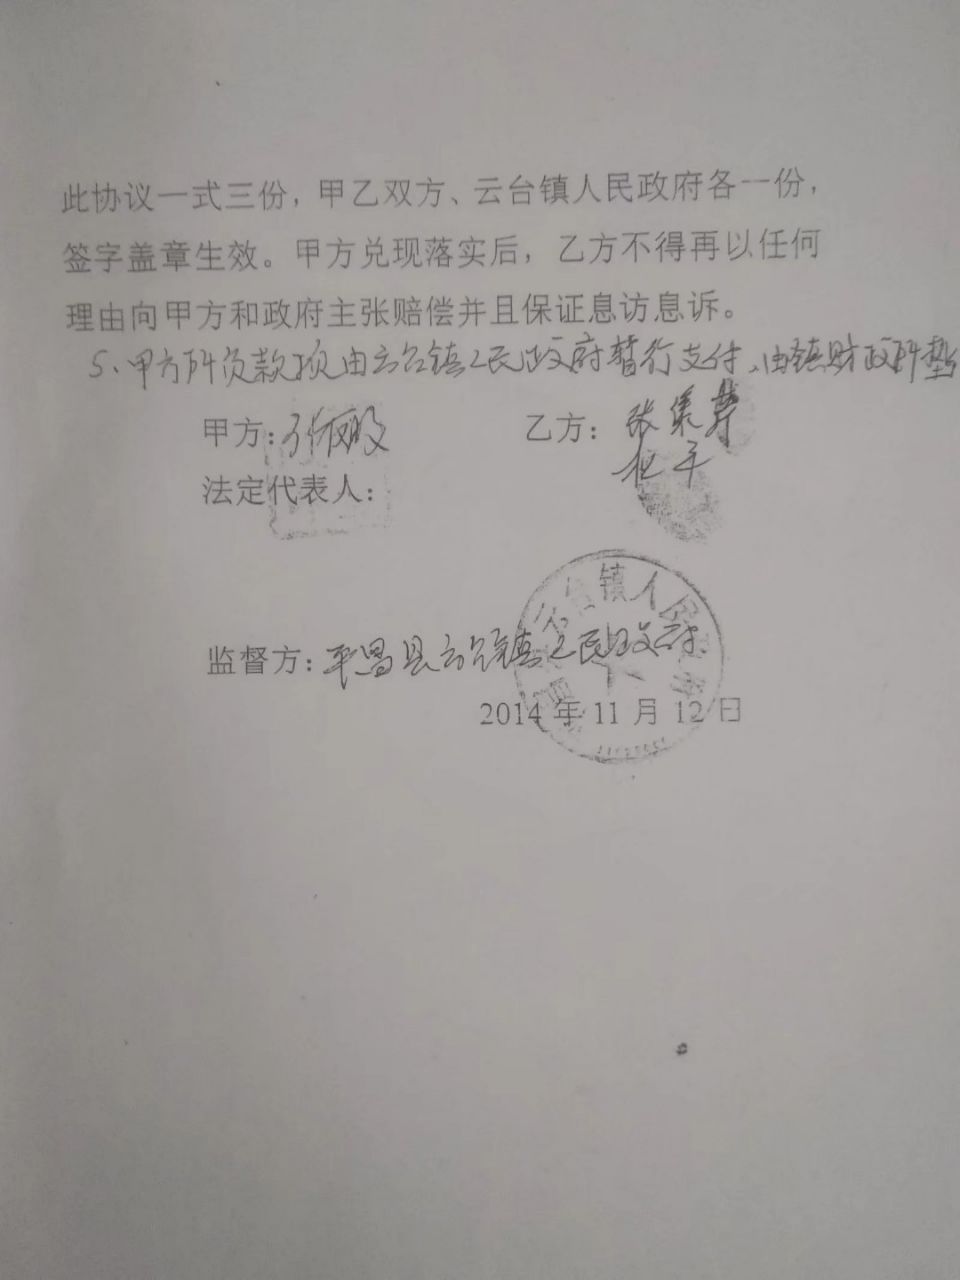 此协议一式三份，甲乙双方、云台镇人民政府各一份，
签字盖章生效。甲方兑现落实后，乙方不得再以任何
理由向甲方和政府主张赔偿并且保证息访息诉。
5、甲方所负款项由云台镇人民政府暂行支付、由镇财政所垫
甲方： 乙方：张
杜平
法定代表人：
云台镇人民
监督方：平昌县云台镇人民政府
2014 年 11 月 12 日